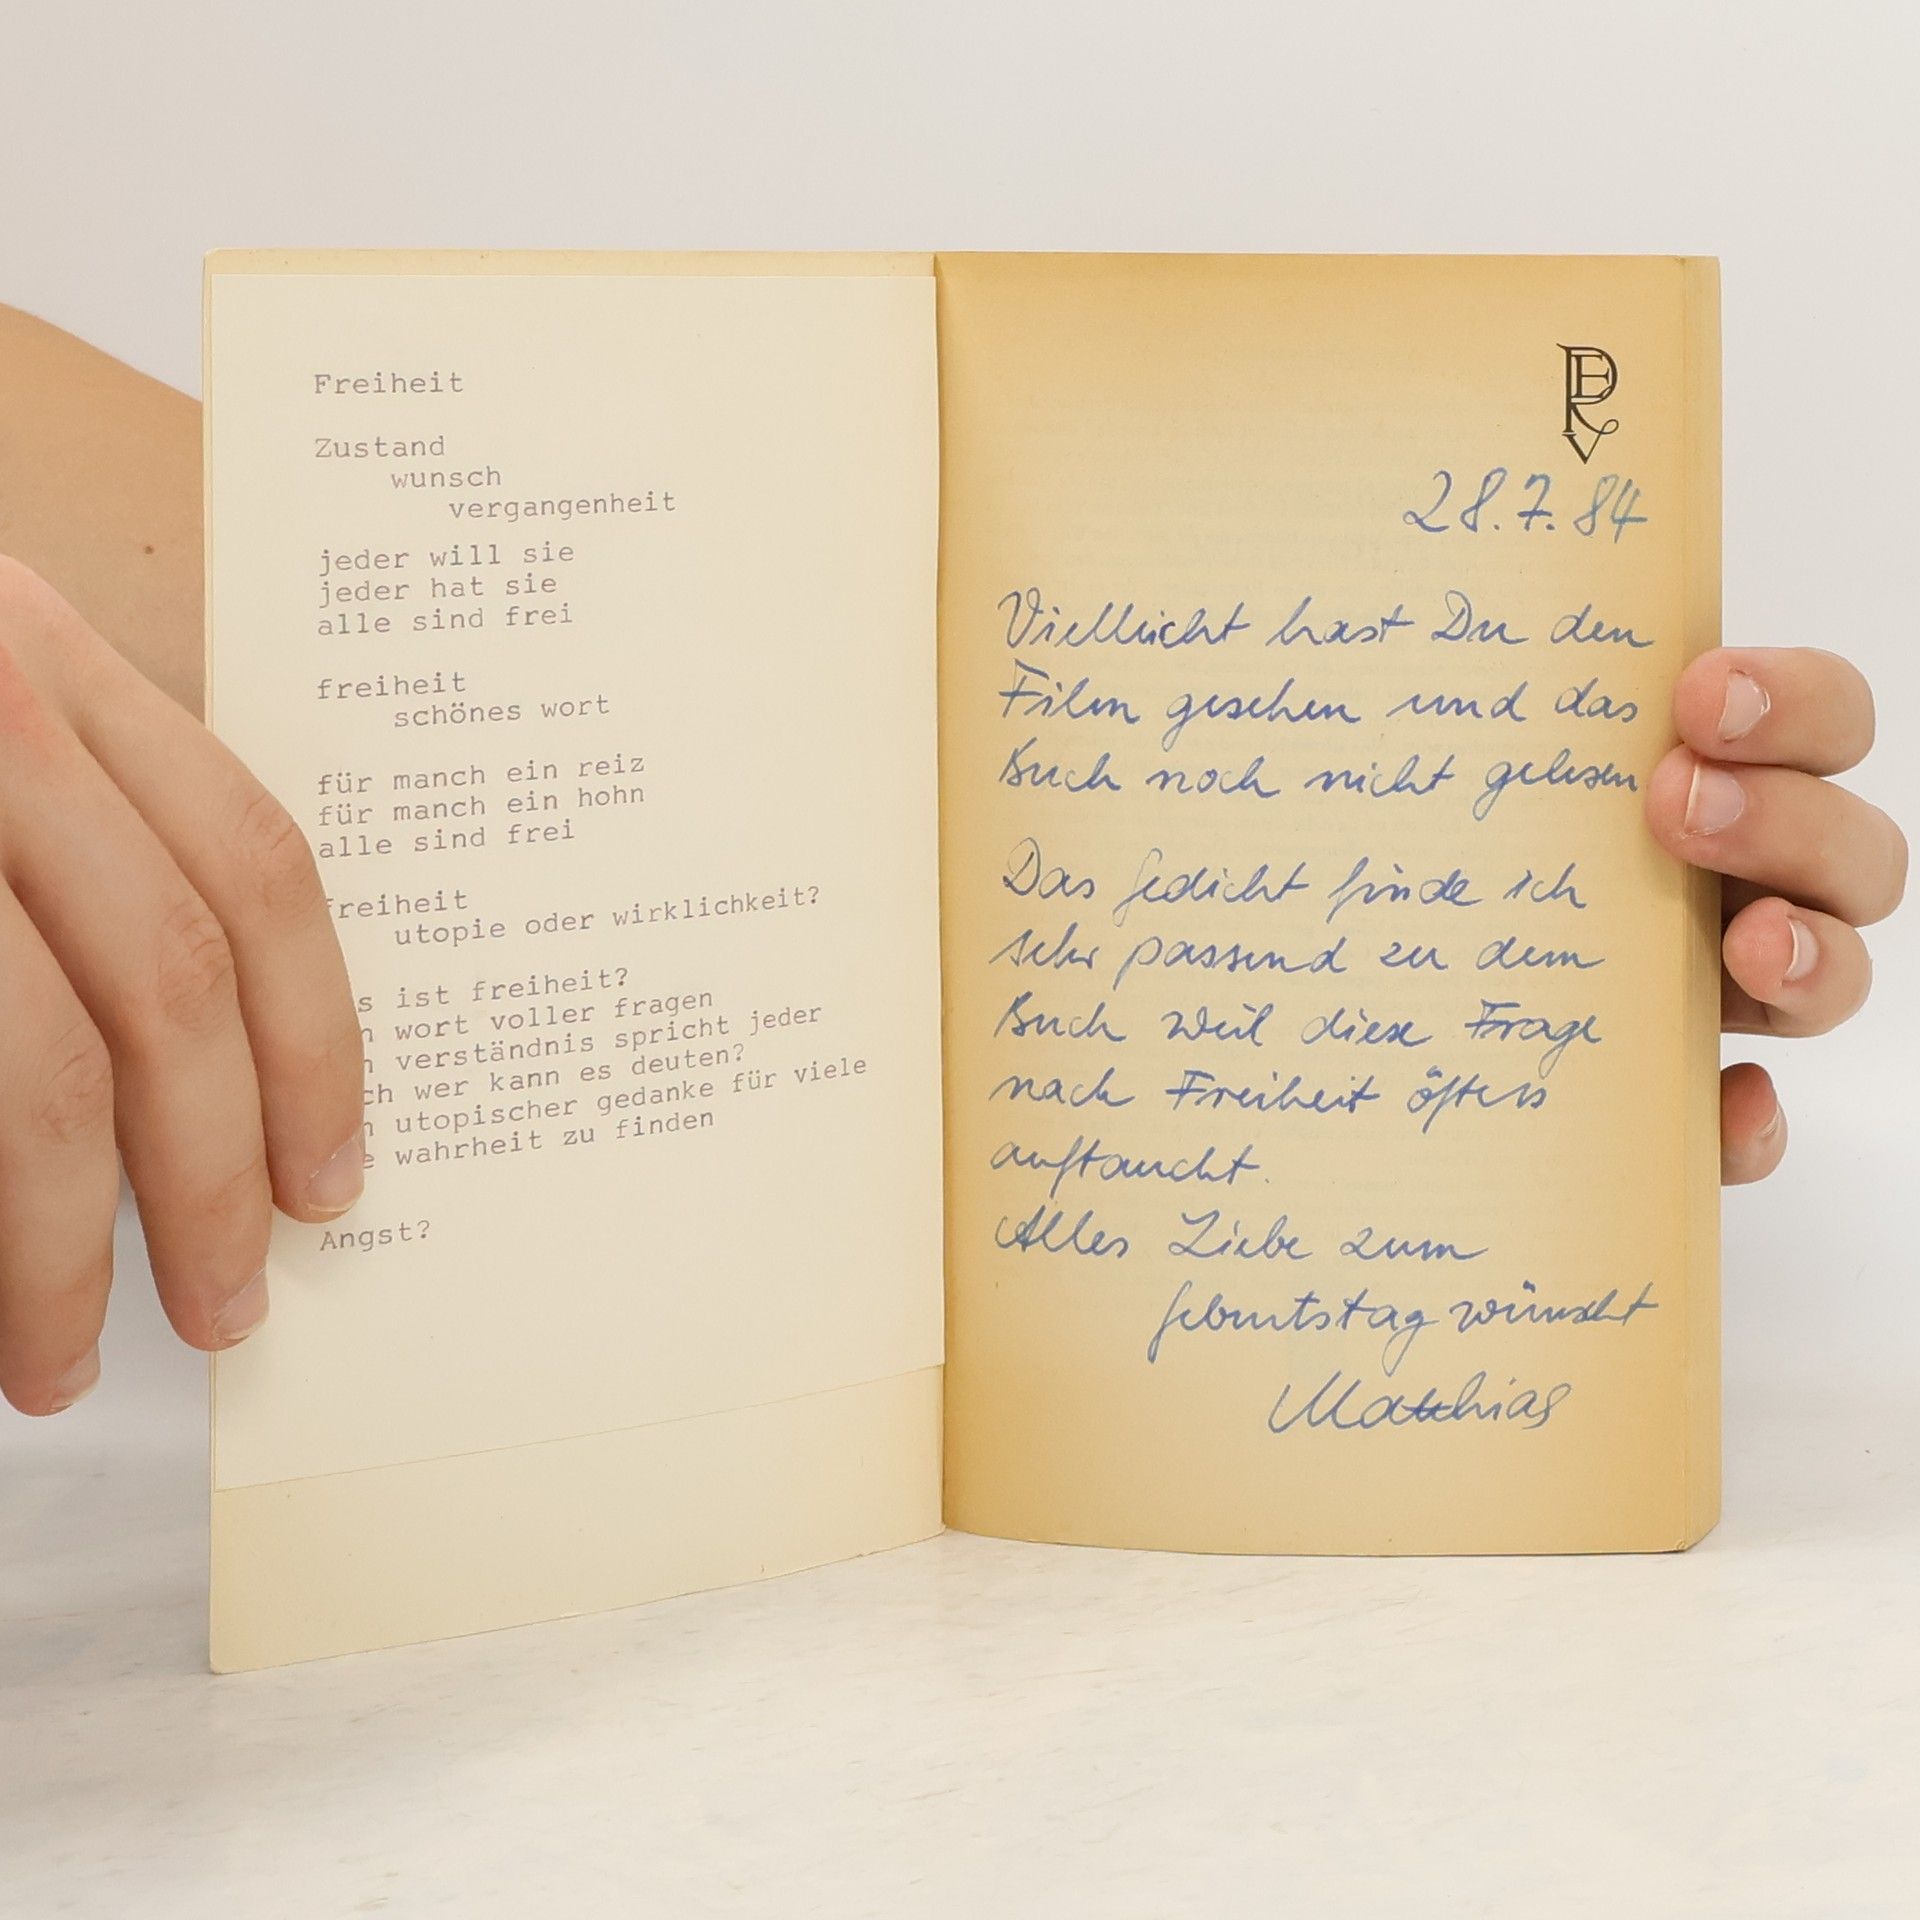 Freiheit
Zustand
wunsch
vergangenheit
jeder will sie
jeder hat sie
alle sind frei
freiheit
schönes wort
für manch ein reiz
für manch ein hohn
alle sind frei
freiheit
utopie oder wirklichkeit?
s ist freiheit?
n wort voller fragen
n verständnis spricht jeder
ch wer kann es deuten?
n utopischer gedanke für viele
e wahrheit zu finden
Angst?
28.7.84
Vielleicht hast Du den
Film gesehen und das
Buch noch nicht gelesen
Das Gedicht finde ich
sehr passend zu dem
Buch weil diese Frage
nach Freiheit öfters
auftaucht.
Alles Liebe zum
Geburtstag wünscht
Matthias